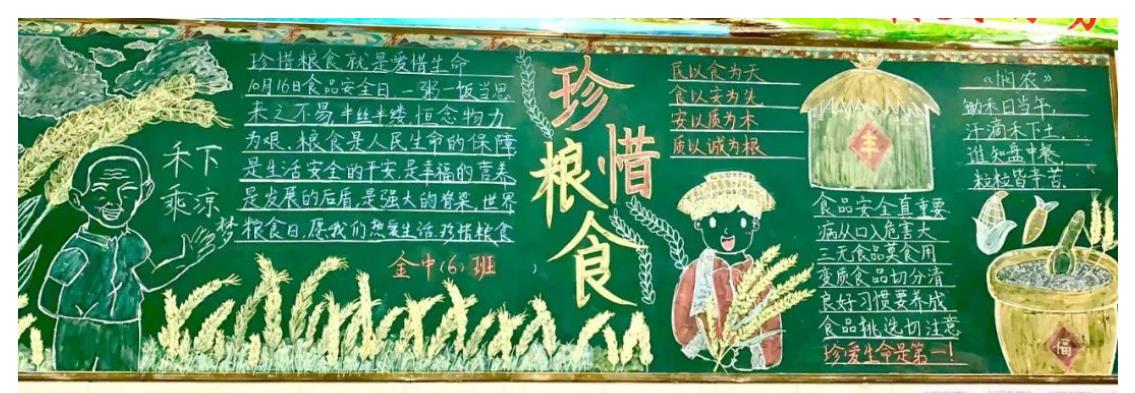 珍惜粮食就是爱惜生命
10月16日食品安全日,一粥一饭当思
来之不易,半丝半缕,恒念物力
为艰.粮食是人民生命的保障
是生活安全的平安,是幸福的营养
是发展的后盾,是强大的脊梁.世界
粮食日,愿我们热爱生活,珍惜粮食
金中(6)班
禾下
乘凉
梦
珍惜
粮食
民以食为天
食以安为先
安以质为本
质以诚为根
丰
食品安全真重要
病从口入危害大
三无食品莫食用
变质食品切分清
良好习惯要养成
食品挑选切注意
珍爱生命是第一!
《悯农》
锄禾日当午,
汗滴禾下土...
谁知盘中餐.
粒粒皆辛苦.
福